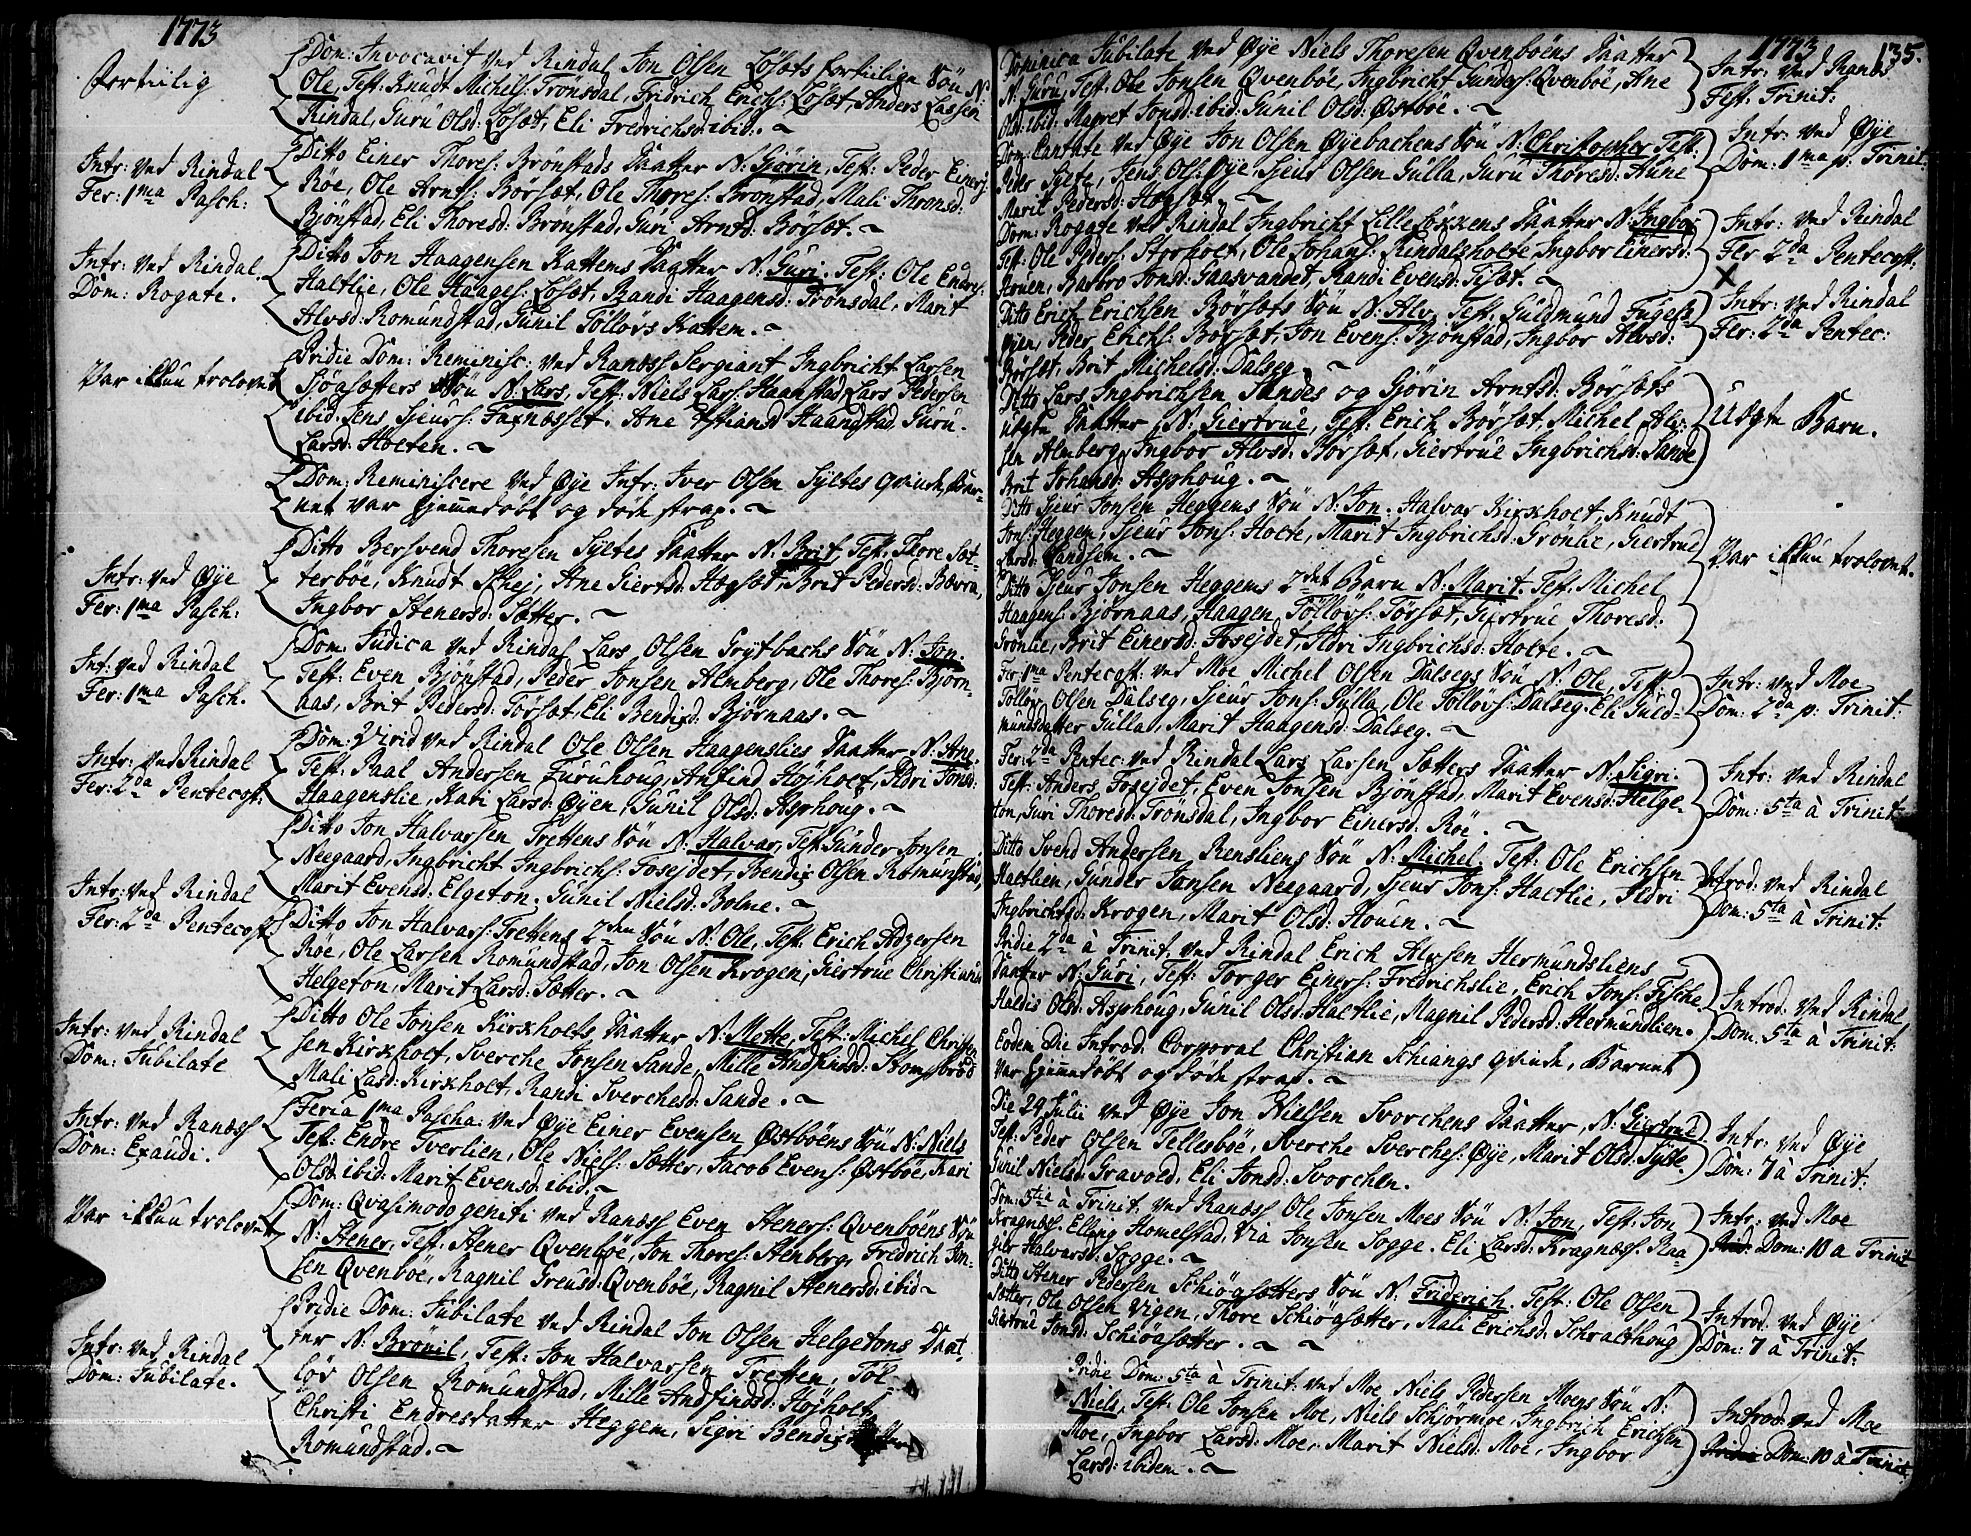 1773
fortiilig
Dom: Invocavit ved Rindal Jon Olsen Löfæts fortiilige Sön N:
Ole, Test: Knudt Michels: Trönsdal, Fridrich Erichs: Löfæt, Anders Larsen
Rindal, Guru Olsd: Löfæt, Eli Fredrichsd: ibid. ~
Intr: ved Rindal
Fer: 1ma Pasch:
Ditto Einer Thores: Brönstads Daatter N: Sjörin, Test: Peder Einers:
Röe, Ole Arnts: Börsæt, Ole Thores: Brönstad, Mali Thronsd:
Bjönstad, Eli Thoresd: Brönstad, Guri Arntsd: Börsæt. ~
Intr: ved Rindal
Dom: Rogate.
Ditto Jon Haagensen Kattems Daatter N: Guri. Test: Ole Endres:
Haltlie, Ole Haages: Löset, Randi Haagensd: Trönsdal, Marit
Alvsd: Romundstad, Gunil Töllövs Kattem. ~
Var ikkun trolovet
Pridie Dom: Reminisc: ved Ranæss Sergiant Ingbricht Larsen
Sjöasætters Sön N: Lars, Test: Niels Lars: Haanstad Lars Pedersen
ibid. Jens Sjeurs: Faxnæsset. Ane Estiansd Haandstad Guru
Larsd: Holten. ~
Dom: Reminiscere ved Øye Intr: Iver Olsen Syltes qvinde, bar-
net var hjemmedöbt og döde strax. ~
Intr: ved Øye
Fer: 1ma Pasch:
Ditto Bersvend Thoresen Syltes Daatter N: Brit Test: Thore Sæt-
terböe, Knudt Skej, Ane Siertsd: Hægsæt, Brit Pedersd: Bævra,
Ingbor Stenersd: Sætter. ~
Int: ved Rindal
Fer: 1ma Pasch.
Dom: Judica ved Rindal Lars Olsen Grytbachs Sön N: Jon.
Test: Even Bjönstad, Peder Jonsen Almberg, Ole Thores: Björn-
aas, Brit Pedersd: Törsæt, Eli Bendixd: Björnaas. ~
Intr: ved Rindal
Fer: 2da Pentecost:
Dom: Virid ved Rindal Ole Olsen Haagenslies Daatter N: Ane.
Test: Paal Andersen Furuhoug, Anfind Höjholt, Ildri Jonsd:
Haagenslie, Kari Larsd: Øyen, Gunil Olsd: Asphoug. ~
Ditto Jon Halvarsen Trettens Sön N: Halvar, Test: Gunder Jonsen
Neegaard, Ingbricht Ingbrichs: Fosejdet, Bendix Olsen Romunstad,
Marit Evensd: Elgeton. Gunil Nielsd: Bolme. ~
Intr: ved Rindal
Fer: 2da Pentecost
Ditto Jon Halvars: Trettens 2den Sön N: Ole, Test: Erich Adzersen
Roe, Ole Larsen Romundstad, Jon Olsen Krogen, Giertrue Christiansd:
Helgeton, Marit Larsd: Sætter. ~
Intr: ved Rindal
Dom: Jubilate
Ditto Ole Jonsen Kirkholts Daatter N: Mette, Test: Michel Christop-
sen Kirkholt, Sverche Jonsen Sande, Mille Andfindsd: Stomsbröd
Mali Lasd: Kirkholt, Randi Sverchesd: Sande. ~
Intr: ved Ranæss
Dom: Exaudi.
Feria 1ma Pascha: ved Øye Einer Evensen Østböens Sön N: Niels
Test: Endre Sverlien, Ole Niels: Sætter, Jacob Evens: Østböe, Kari
Olsd ibid: Marit Evensd: ibid. ~
Var ikkun trolovet
Dom: Qvasimodogeniti ved Ranæss Even Steners: Qvenböens Sön
N: Stener, Test: Stener Qvenböe, Jon Thores: Stenberg, Fredrich Jon-
sen Qvenböe, Ragnil Greusd: Qvenböe, Ragnil Stenersd: ibid ~
Intr: ved Rindal
Dom: Jubilate.
Pridie Dom: Jubilate ved Rindal Jon Olsen Helgetons Daat-
ter N: Brönil, Test: Jon Halvarsen Tretten, Töl-
löv Olsen Romundstad, Mille Andfindsd: Höjholt,
Christi Endresdatter Heggem, Sigri Bendixdatter
Romundstad. ~
1773
135.
Dominica Jubilate ved Øye Niels Thoresen Qvenböens Daatter
N: Guru, Test: Ole Jonsen Qvenböe, Ingbricht Gunders: Qvenböe, Ane
Olsd: ibid: Magret Jonsd: ibid: Gunil Olsd: Østböe. ~
Intr: ved Ranæs
Fest: Trinit:
Dom: Cantate ved Øye Jon Olsen Øyebachens Sön N: Christopher Test:
Peder Sylte, Jens Ols: Øye, Sjeur Olsen Gulla, Guru Thoresd: Aune
Marit Pedersd: Hægsæt. ~
Intr: ved Øye
Dom: 1ma p: Trinit:
Dom: Rogate ved Rindal Ingbricht Lille Løkkens Daatter N: Ingbor
Test: Ole Peders: Storholt, Ole Johans: Rindalsholte Ingbor Einersd:
Struen, Barbro Jonsd: Gaasvandet, Randi Evensd: Tiset. ~
Intr: ved Rindal
Fer 2da Pentecost:
X
Ditto Erich Erichsen Börsæts Sön N: Alv, Test: Guldmund Fugels-
øyen, Peder Erichs: Börsæt, Jon Evens: Bjönstad, Ingbor Alvsd:
Börsæt, Brit Michelsd: Dalseg. ~
Intr: ved Rindal
Fer: 2da Pentec:
Ditto Lars Ingbrichsen Sandes og Sjörin Arntsd: Börsæts
uægte Daatter N: Giertrue, Test: Erich Börsæt, Michel Alv-
sen Almberg, Ingbor Alvsd: Börsæt, Giertrue Ingbrichsd: Sande
Brit Johansd: Asphoug. ~
Uægte Barn.
Ditto Sjeur Jonsen Heggens Sön N: Jon. Halvar Kirkholt, Knudt
Jons: Heggem, Sjeur Jons: Holte, Marit Ingbrichsd: Gronlie, Giertrue
Larsd: Landsem. ~
Var ikkun trolovet.
Ditto Sjeur Jonsen Heggems 2det Barn N: Marit. Test: Michel
Haagens: Björnaas, Haagen Töllövs: Törsæt, Giertrue Thoresd:
Gronlie, Brit Einersd: Fosejdet, Ildri Ingbrichsd: Holte. ~
Fer: 1ma Pentecost: ved Moe Michel Olsen Dalsegs Sön N: Ole, Test:
Töllöv Olsen Dalseg, Sjeur Jons: Gulla, Ole Töllövs: Dalseg. Eli Guld-
mundsdatter Gulla, Marit Haagensd: Dalseg. ~
Intr: ved Moe
Dom: 2da p: Trinit:
Fer: 2da Pentec: ved Rindal Lars Larsen Sætters Daatter N: Sigri.
Test: Anders Fosejdet, Even Jonsen Bjönstad, Marit Evensd: Helge-
ton, Guri Thoresd: Trönsdal, Ingbor Einersd: Röe. ~
Intr: ved Rindal
Dom: 5ta à Trinit:
Ditto Svend Andersen Rensliens Sön N: Michel, Test: Ole Erichsen
Haltlien, Gunder Jonsen Neegaard, Sjeur Jons: Haltlie, Ildri
Ingbrichtsd: Krogen, Marit Olsd: Houen. ~
Introd: ved Rindal
Dom: 5ta à Trinit:
Pridie 2da à Trinit: ved Rindal Erich Alvsen Hermundsliens
Daatter N: Guri, Test: Torger Einers: Fredrichslie, Erich Jons: Fiske
Haldis Olsd: Asphoug, Gunil Olsd: Haltlie, Magnil Pedersd: Hermundslien.
Introd: ved Rindal
Dom: 5ta à Trinit:
Eodem Die Introd: Corporal Christian Schiangs qvinde, Barnet
var hjemmedöbt og döde strax. ~
Die 29 Julii ved Øye Jon Nielsen Svorchens Daatter, N: Giertrue
Test: Peder Olsen Tellesböe, Sverche Sverches: Øye, Marit Olsd: Sylte
Gunil Nielsd: Gravold, Eli Jonsd: Svorchen.
Intr: ved Øye
Dom: 7 à Trinit:
Dom: 5ta à Trinit: ved Ranæss Ole Jonsen Moes Sön N: Jon, Test: Jon
Kragnæs: Elling Homelstad, Via Jonsen Sogge. Eli Larsd: Kragnæss: Raa-
gnil Halvarsd: Sogge. ~
Intr: ved Moe
Dom: 10 a Trinit
Ditto Stener Pedersen Schiöasætters Sön N: Friderich. Test: Ole Olsen
Sætter, Ole Olsen Vigen, Thore Schiöasætter, Mali Erichsd: Schralthoug
Giertrue Jonsd: Schiöasætter. ~ ~
Introd: ved Øye
Dom: 7 à Trinit:
Pridie Dom: 5ta à Trinit: ved Moe Niels Pedersen Moens Sön N:
Niels, Test: Ole Jonsen Moe, Niels Schjörmoe, Ingbrich Erichsen
Moe, Ingbor Larsd: Moe, Marit Nielsd: Moe, Ingbor
Larsd: ibidem. ~
Introd: ved Moe
Dom: 10 à Trinit: